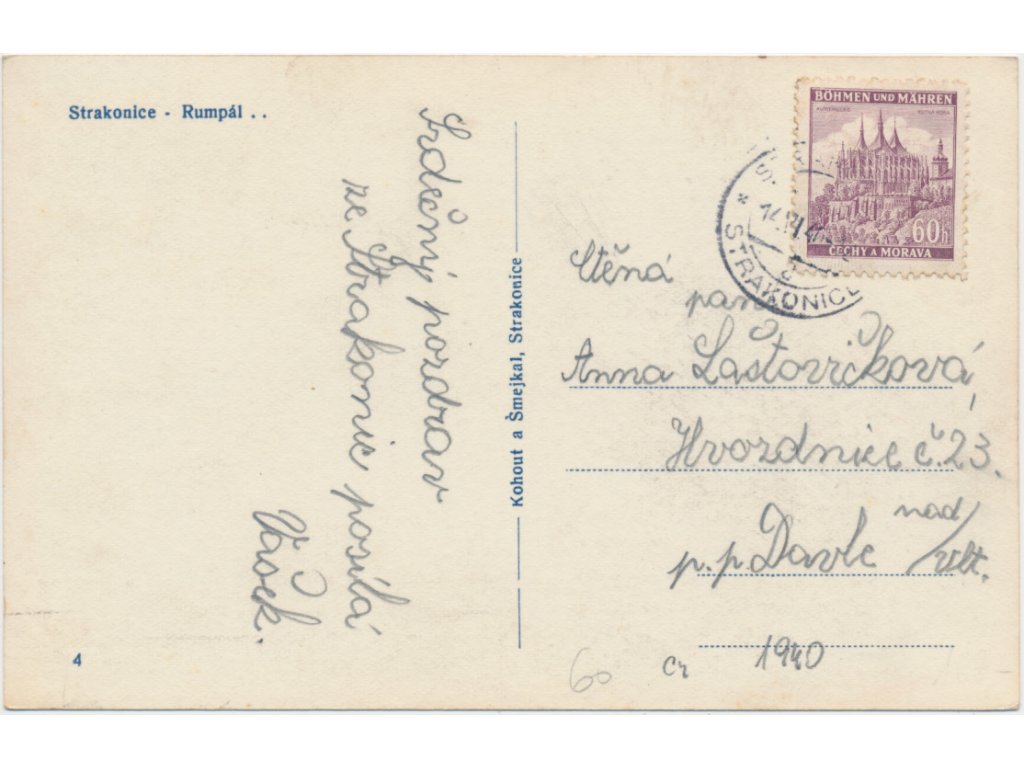 Strakonice - Rumpál . .
Srdečný pozdrav
ze Strakonic posílá
Vašek.
4
Kohout a Šmejkal, Strakonice
BÖHMEN UND MÄHREN
60h
ČECHY A MORAVA
STRAKONICE
Ctěná
paní
Anna Laštovičková
Hvozdnice č. 23.
p. p. Davle nad/Vlt.
60
Cr
1940